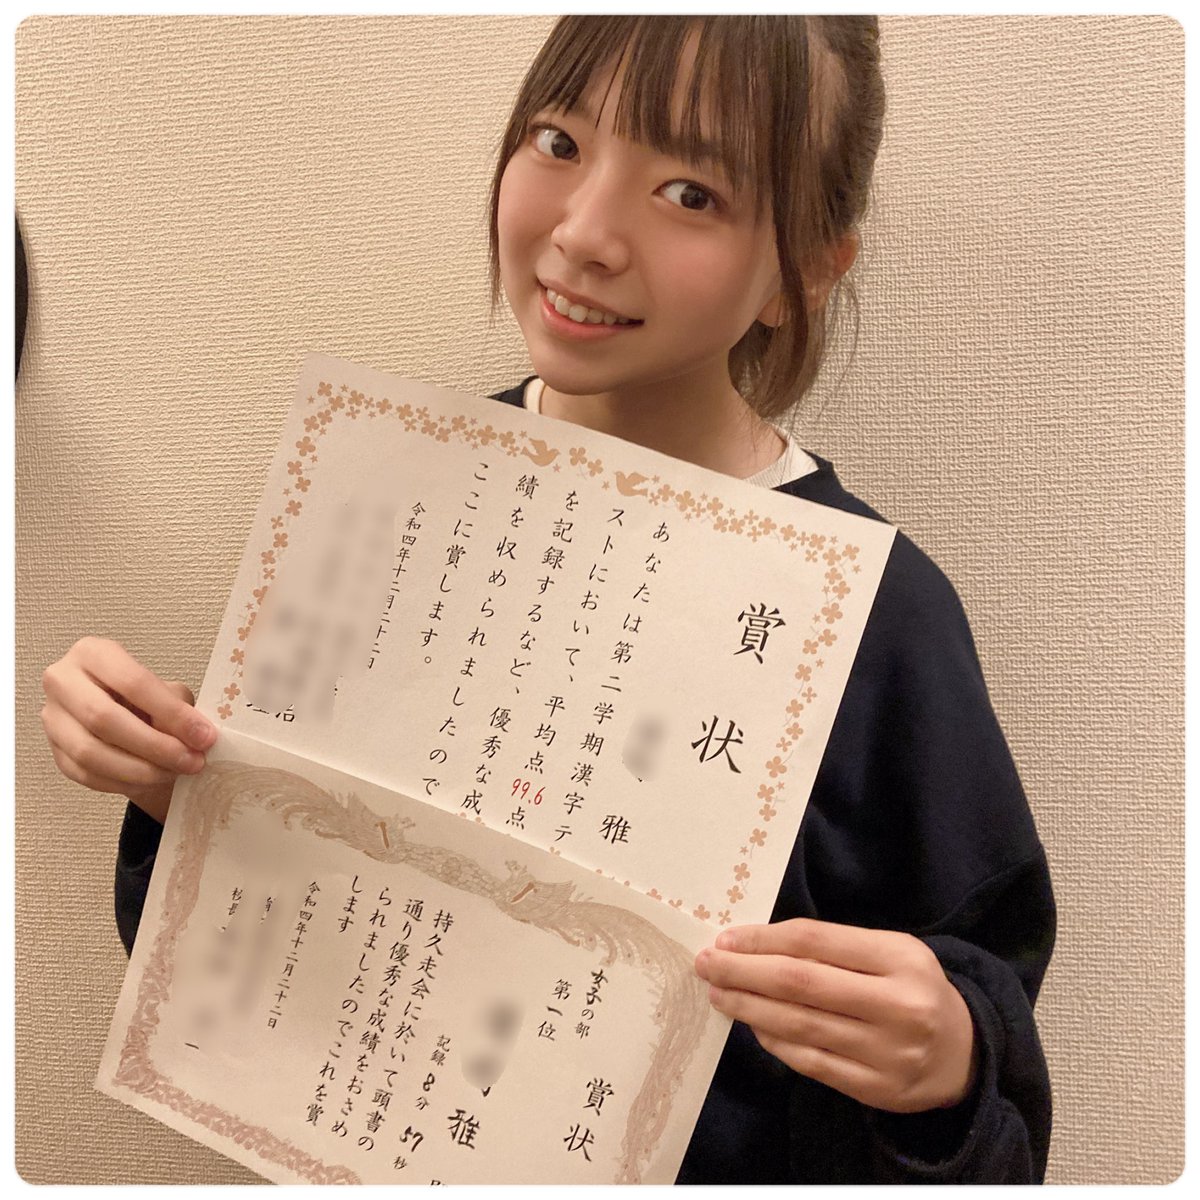 賞状
雅
あなたは第二学期漢字テ
ストにおいて、平均点99.6点
を記録するなど、優秀な成
績を収められましたので
ここに賞します。
令和四年十二月二十二日
治
賞状
女子の部
第一位
雅
記録 8分57秒
持久走会に於いて頭書の
通り優秀な成績をおさめ
られましたのでこれを賞
します
令和四年十二月二十二日
校長